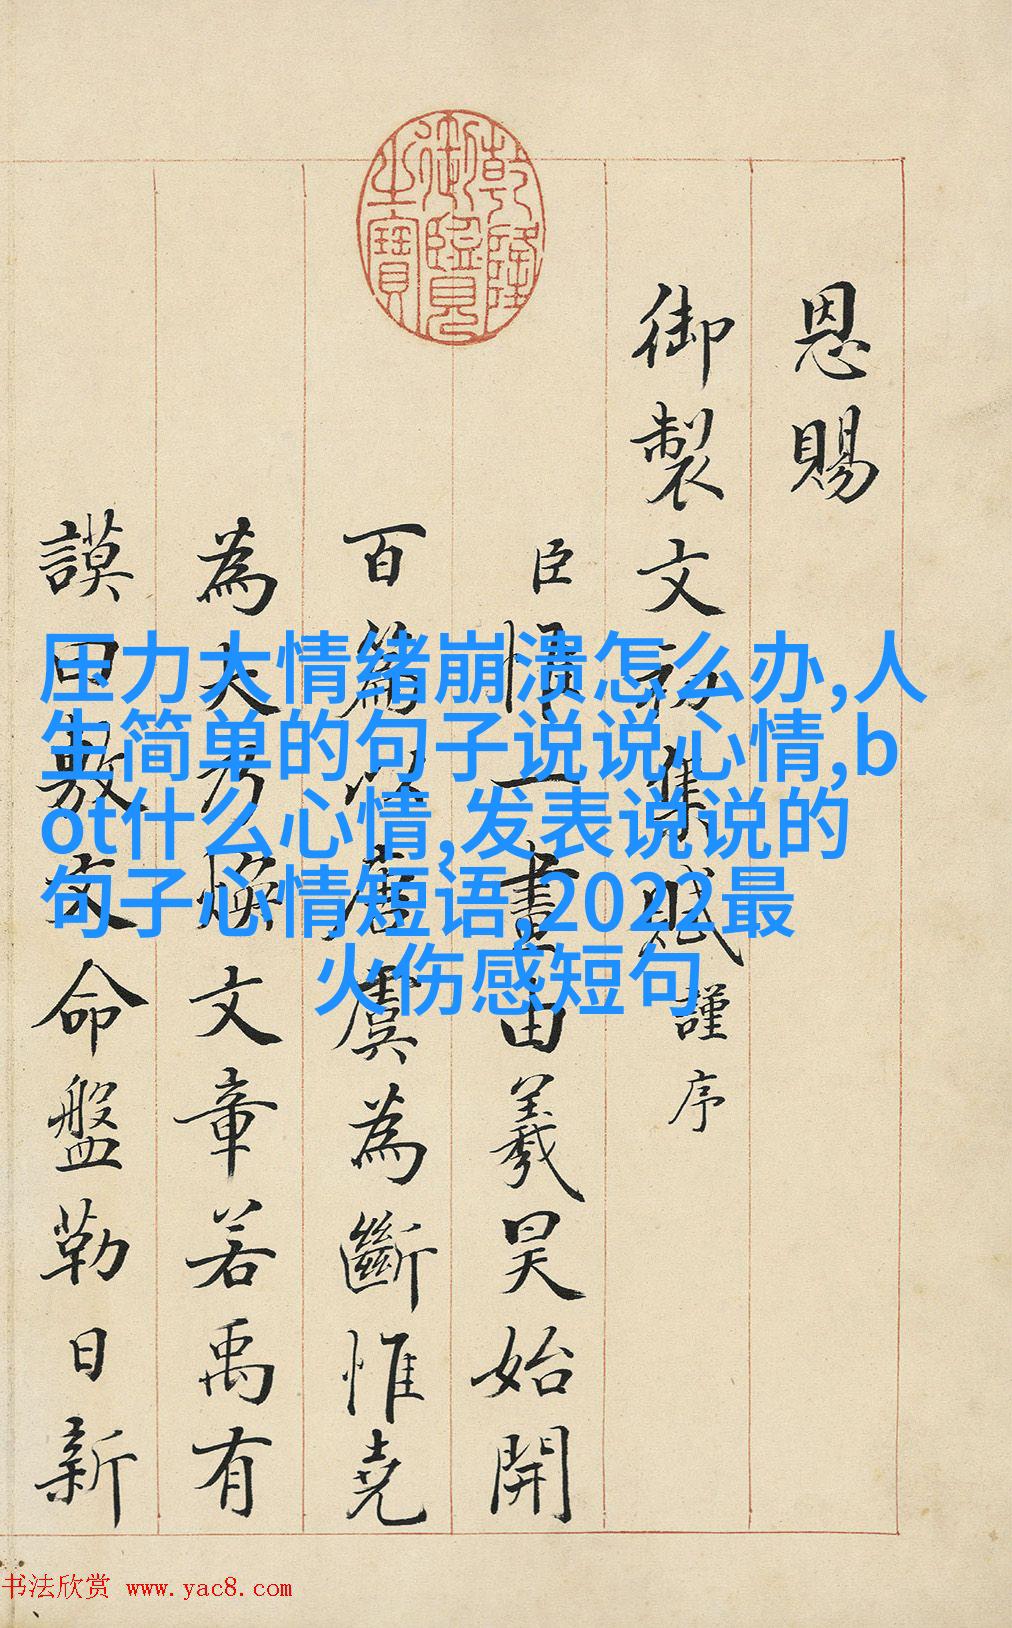 恩賜
御製文初集賦謹序
臣惟一畫由羲昊始開
百篇以唐虞為斷惟堯
為大乃煥文章若禹有
謨曰敷文命盤勒日新
乾隆御覽之寶
压力大情绪崩溃怎么办,人
生简单的句子说说心情,b
ot什么心情,发表说说的
句子心情短语,2022最
火伤感短句
书法欣赏 www.yac8.com